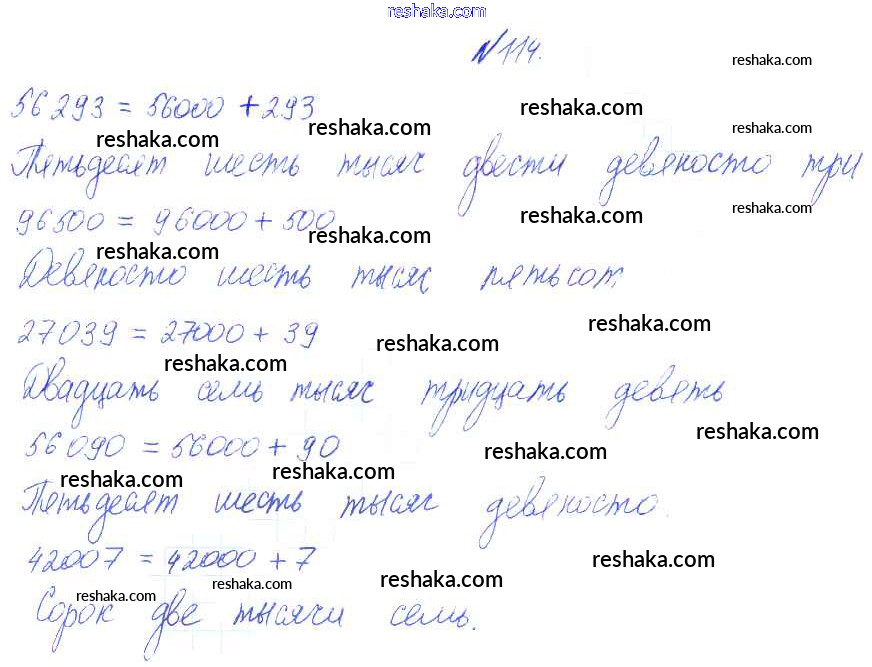 reshaka.com
№114.
reshaka.com
56 293 = 56000 + 293
reshaka.com
reshaka.com
reshaka.com
reshaka.com
Пятьдесят шесть тысяч двести девяносто три
96500 = 96000 + 500
reshaka.com
reshaka.com
reshaka.com
reshaka.com
Девяносто шесть тысяч пятьсот
27039 = 27000 + 39
reshaka.com
reshaka.com
reshaka.com
Двадцать семь тысяч тридцать девять
56 090 = 56000 + 90
reshaka.com
reshaka.com
reshaka.com
reshaka.com
Пятьдесят шесть тысяч девяносто.
42007 = 42000 + 7
reshaka.com
reshaka.com
reshaka.com
reshaka.com
Сорок две тысячи семь.